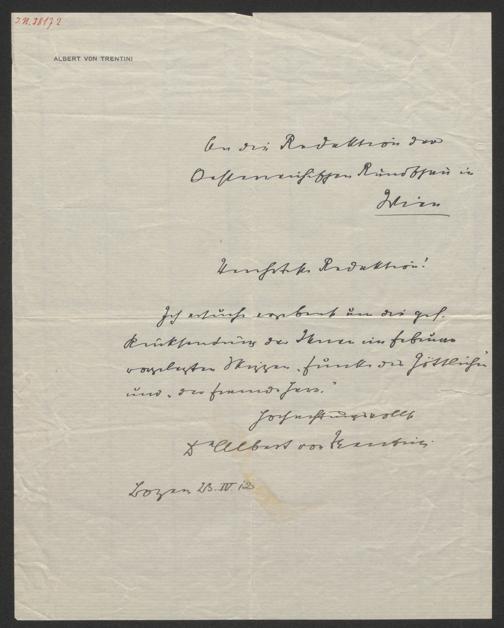 I.N. 38172
ALBERT VON TRENTINI
An die Redaktion der
Oesterreichischen Rundschau in
Wien
Verehrteste Redaktion!
Ich ersuche ergebenst um die gef.
Rücksendung der Ihnen im Februar
vorgelegten Skizzen „Funke des Göttlichen"
und „der fremde Herr."
Hochachtungsvollst
Dr Albert von Trentini.
Bozen 23. IV. 12